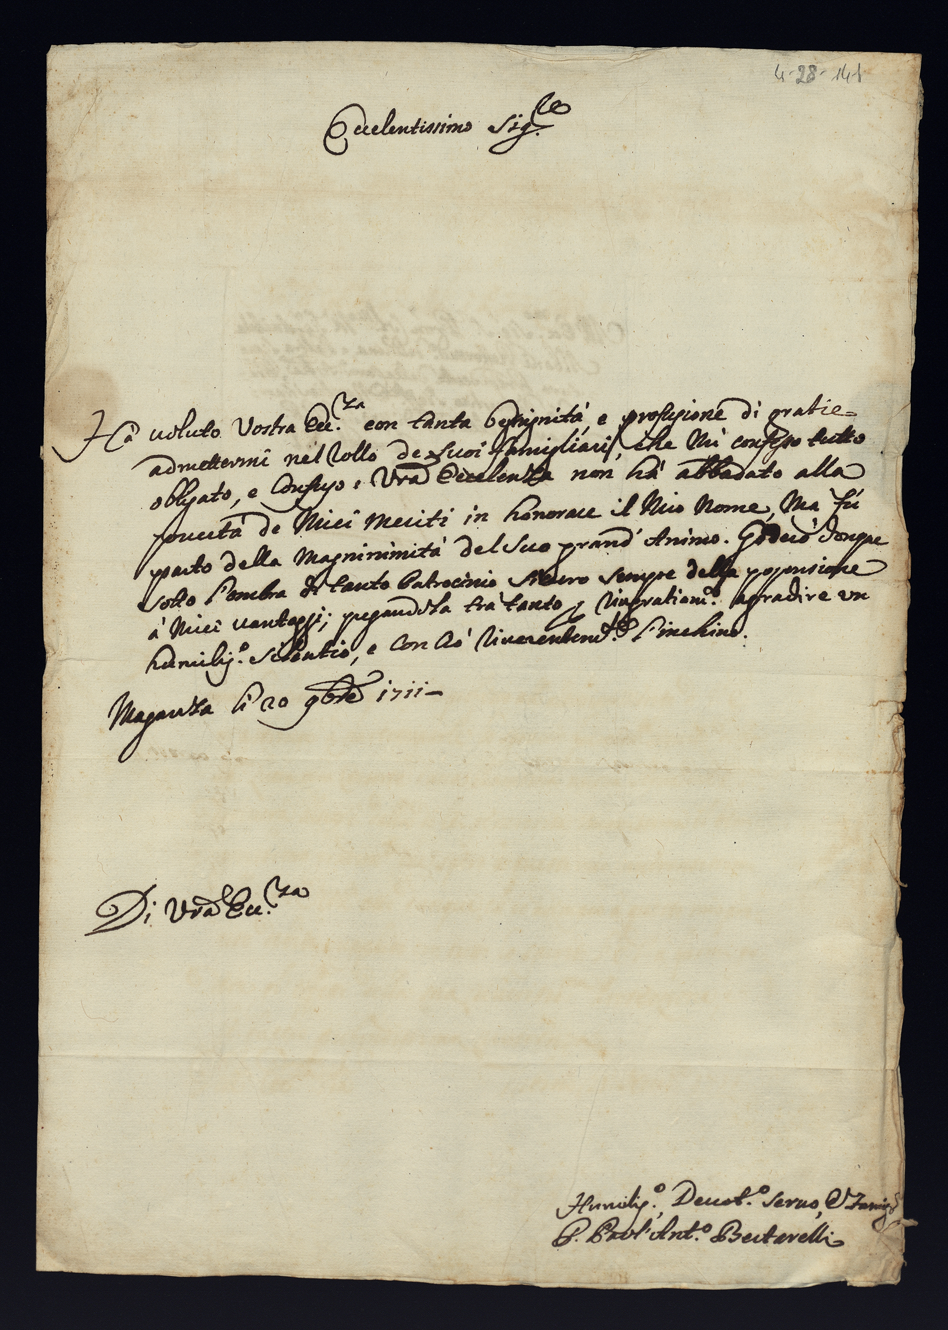 4-28-141
Eccelentissimo Sig.re
Hà uoluto Vostra Ecc.za con tanta benignità, e profusione di gratie
admettermi nel Rollo de Suoi famigliari, che Mi confesso tutto
obligato, e Confuso: Vra Eccelenza non hà abbadato alla
pouertà de Miei meriti in honorare il Mio Nome, Ma fú
parto della Magninimità del Suo grand' Animo. Goderò donque
sotto l'ombra di tanto Patrocinio Sicuro sempre della propensione
á Miei vantaggi; pregandola trà tanto p Ringratiam.o agradire vn
humiliss.o Silentio, e con ciò Riuerentem.te l'inchino.
Maganza li 20 9bre 1711
Di Vra Ecc.za
Humiliss.o, Deuot.o Seruo, &
P. Paol' Ant.o Bertarelli